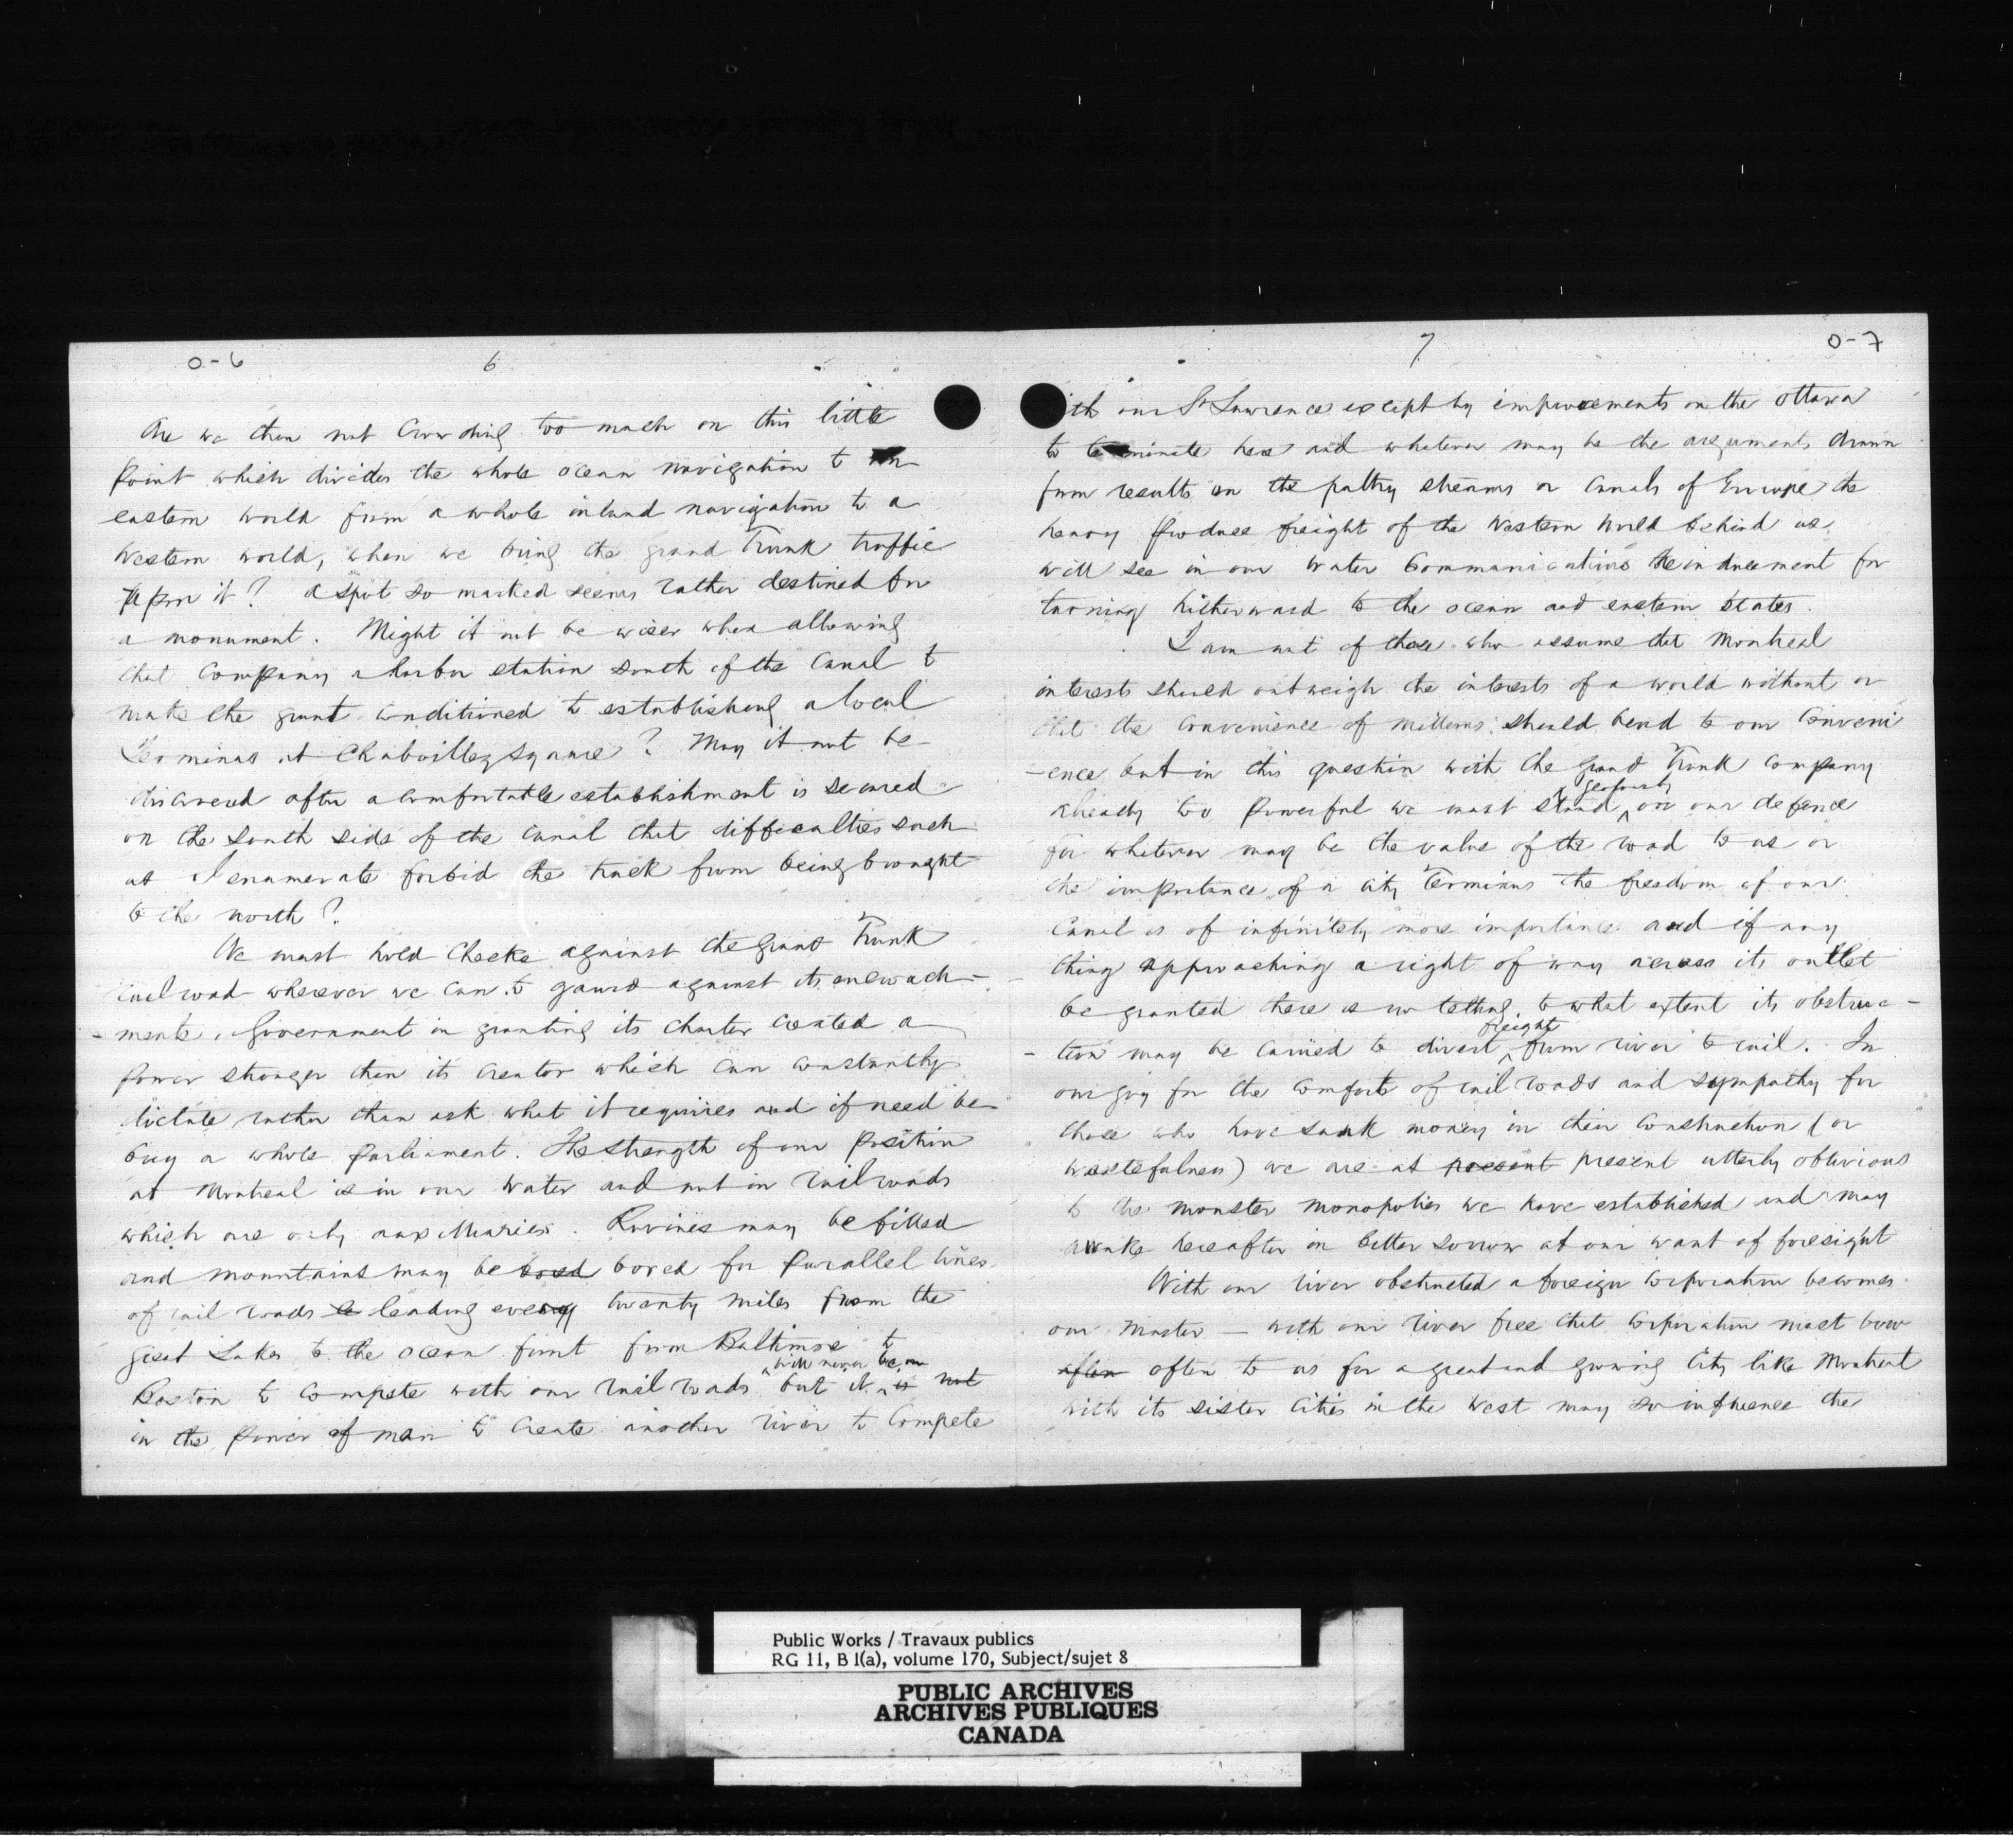 0-6
6
Are we then not Crowding too much on this little
point which divides the whole ocean navigation to an
eastern world from a whole inland navigation to a
Western world, when we bring the grand Trunk traffic
upon it? A spot so marked seems rather destined for
a monument. Might it not be wiser when allowing
that Company a harbor station south of the Canal to
make the grant conditioned to establishing a local
Terminus at Chaboillez Square? May it not be
discovered after a comfortable establishment is secured
on the South side of the Canal that difficulties such
as I enumerate forbid the track from being brought
to the north?
We must hold Checks against the Grand Trunk
railroad wherever we can to gaurd against its encroach-
-ments. Government in granting its charter created a
power stronger then its creator which can constantly
dictate rather than ask what it requires and if need be
buy a whole parliament. The strength of our position
at Montreal is in our Water and not in railroads
which are only auxilliaries. Ravines may be filled
and mountains may be bored bored for parallel lines
of rail roads le leading every twenty miles from the
great Lakes to the ocean front from Baltimore to
Boston to compete with our rail roads but it will never be in is not
in the power of man to create another river to Compete
7
0-7
with our St Lawrence except by improvements on the Ottawa
to terminate here and whatever may be the arguments drawn
from results on the paltry streams or canals of Europe the
heavy produce freight of the Western World behind us
will see in our Water Communications the inducement for
turning hitherward to the ocean and eastern States.
I am not of those who assume that Montreal
interests should outweigh the interests of a world without or
that the convenience of millions should bend to our Conveni
-ence but in this question with the Grand Trunk Company
already too powerful we must stand on our defence
for whatever may be the value of the road to us or
the importance of a City Terminus the freedom of our
Canal is of infinitely more importance and if any
thing approaching a right of way across its outlet
be granted there is no telling to what extent its obstruc-
-tion may be carried to divert freight from river to rail. In
our joy for the comforts of rail roads and sympathy for
those who have sunk money in their construction (or
wastefulness) we are at present present utterly oblivious
to the monster monopolies we have established and may
awake hereafter in bitter sorrow at our want of foresight
With our river obstructed a foreign Corporation becomes
our Master — with our river free that Corporation must bow
often often to us for a great and growing City like Montreal
with its sister Cities in the West may so influence the
Public Works / Travaux publics
RG 11, B 1(a), volume 170, Subject/sujet 8
PUBLIC ARCHIVES
ARCHIVES PUBLIQUES
CANADA